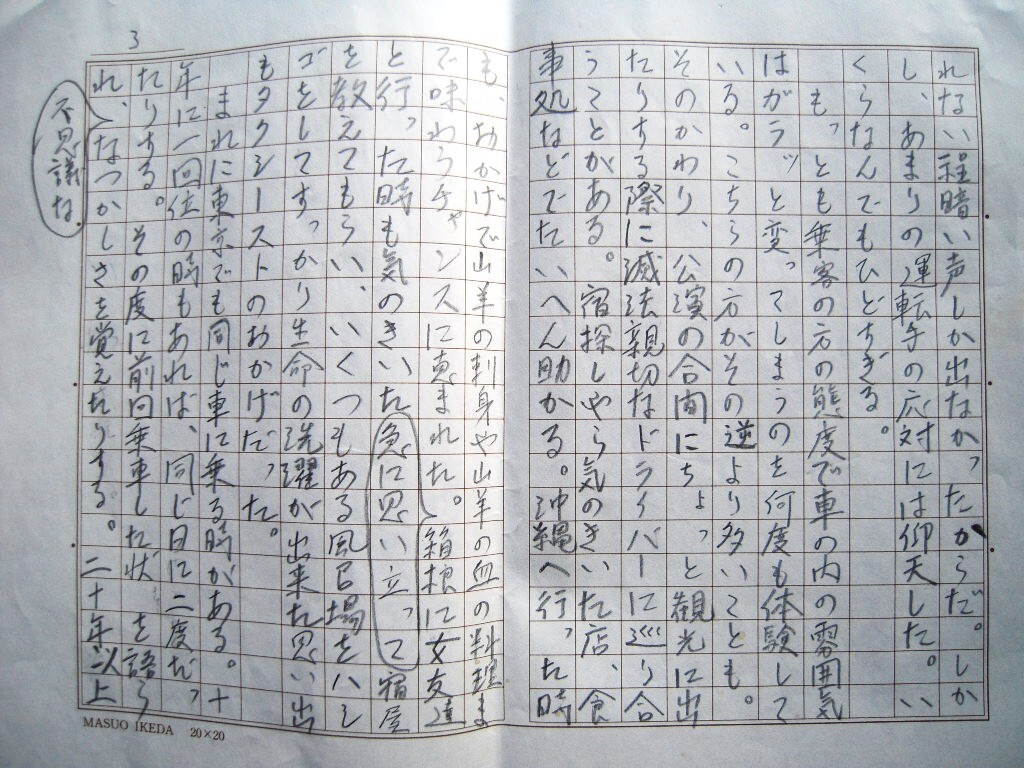 れない程暗い声しか出なかったからだ。しか
し、あまりの運転手の応対には仰天した。い
くらなんでもひどすぎる。
もっとも乗客の方の態度で車の内の雰囲気
はガラッと変ってしまうのを何度も体験して
いる。こちらの方がその逆より多いことも。
そのかわり、公演の合間にちょっと観光に出
たりする際に滅法親切なドライバーに巡り合
うことがある。宿探しやら気のきいた店、食
事処などでたいへん助かる。沖縄へ行った時
も、おかげで山羊の刺身や山羊の血の料理ま
で味わうチャンスに恵まれた。箱根に女友達
と行った時も気のきいた急に思い立って宿屋
を教えてもらい、いくつもある風呂場をハシ
ゴをしてすっかり生命の洗濯が出来た思い出
もタクシーストのおかげだった。
まれに東京でも同じ車に乗る時がある。十
年に一回位の時もあれば、同じ日に二度だっ
たりする。その度に前回乗車した状を語ら
れ、なつかしさを覚えたりする。二十年以上
不思議な
3
MASUO IKEDA 20×20